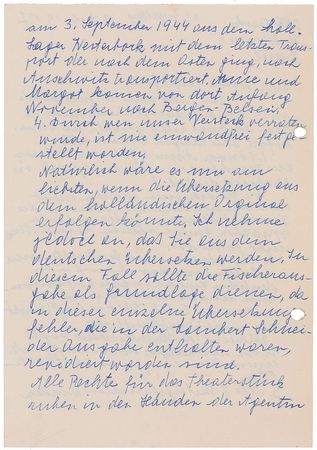 am 3. September 1944 aus dem holl.
Lager Westerbork mit dem letzten Trans-
port der nach dem Osten ging, nach
Auschwitz transportiert, Anne und
Margot kamen von dort Anfang
November nach Bergen-Belsen.
4. Durch wen unser Versteck verraten
wurde, ist nie einwandfrei festge-
stellt worden.
Natürlich wäre es mir am
liebsten, wenn die Übersetzung aus
dem holländischen Original
erfolgen könnte. Ich nehme
jedoch an, daß Sie aus dem
deutschen übersetzen werden. In
diesem Fall sollte die Fischeraus-
gabe als Grundlage dienen, da
in dieser einzelne Übersetzungs
fehler, die in der Lambert Schnei-
der Ausgabe enthalten waren,
revidiert worden sind.
Alle Rechte für das Theaterstück
ruhen in den Händen der Agentin